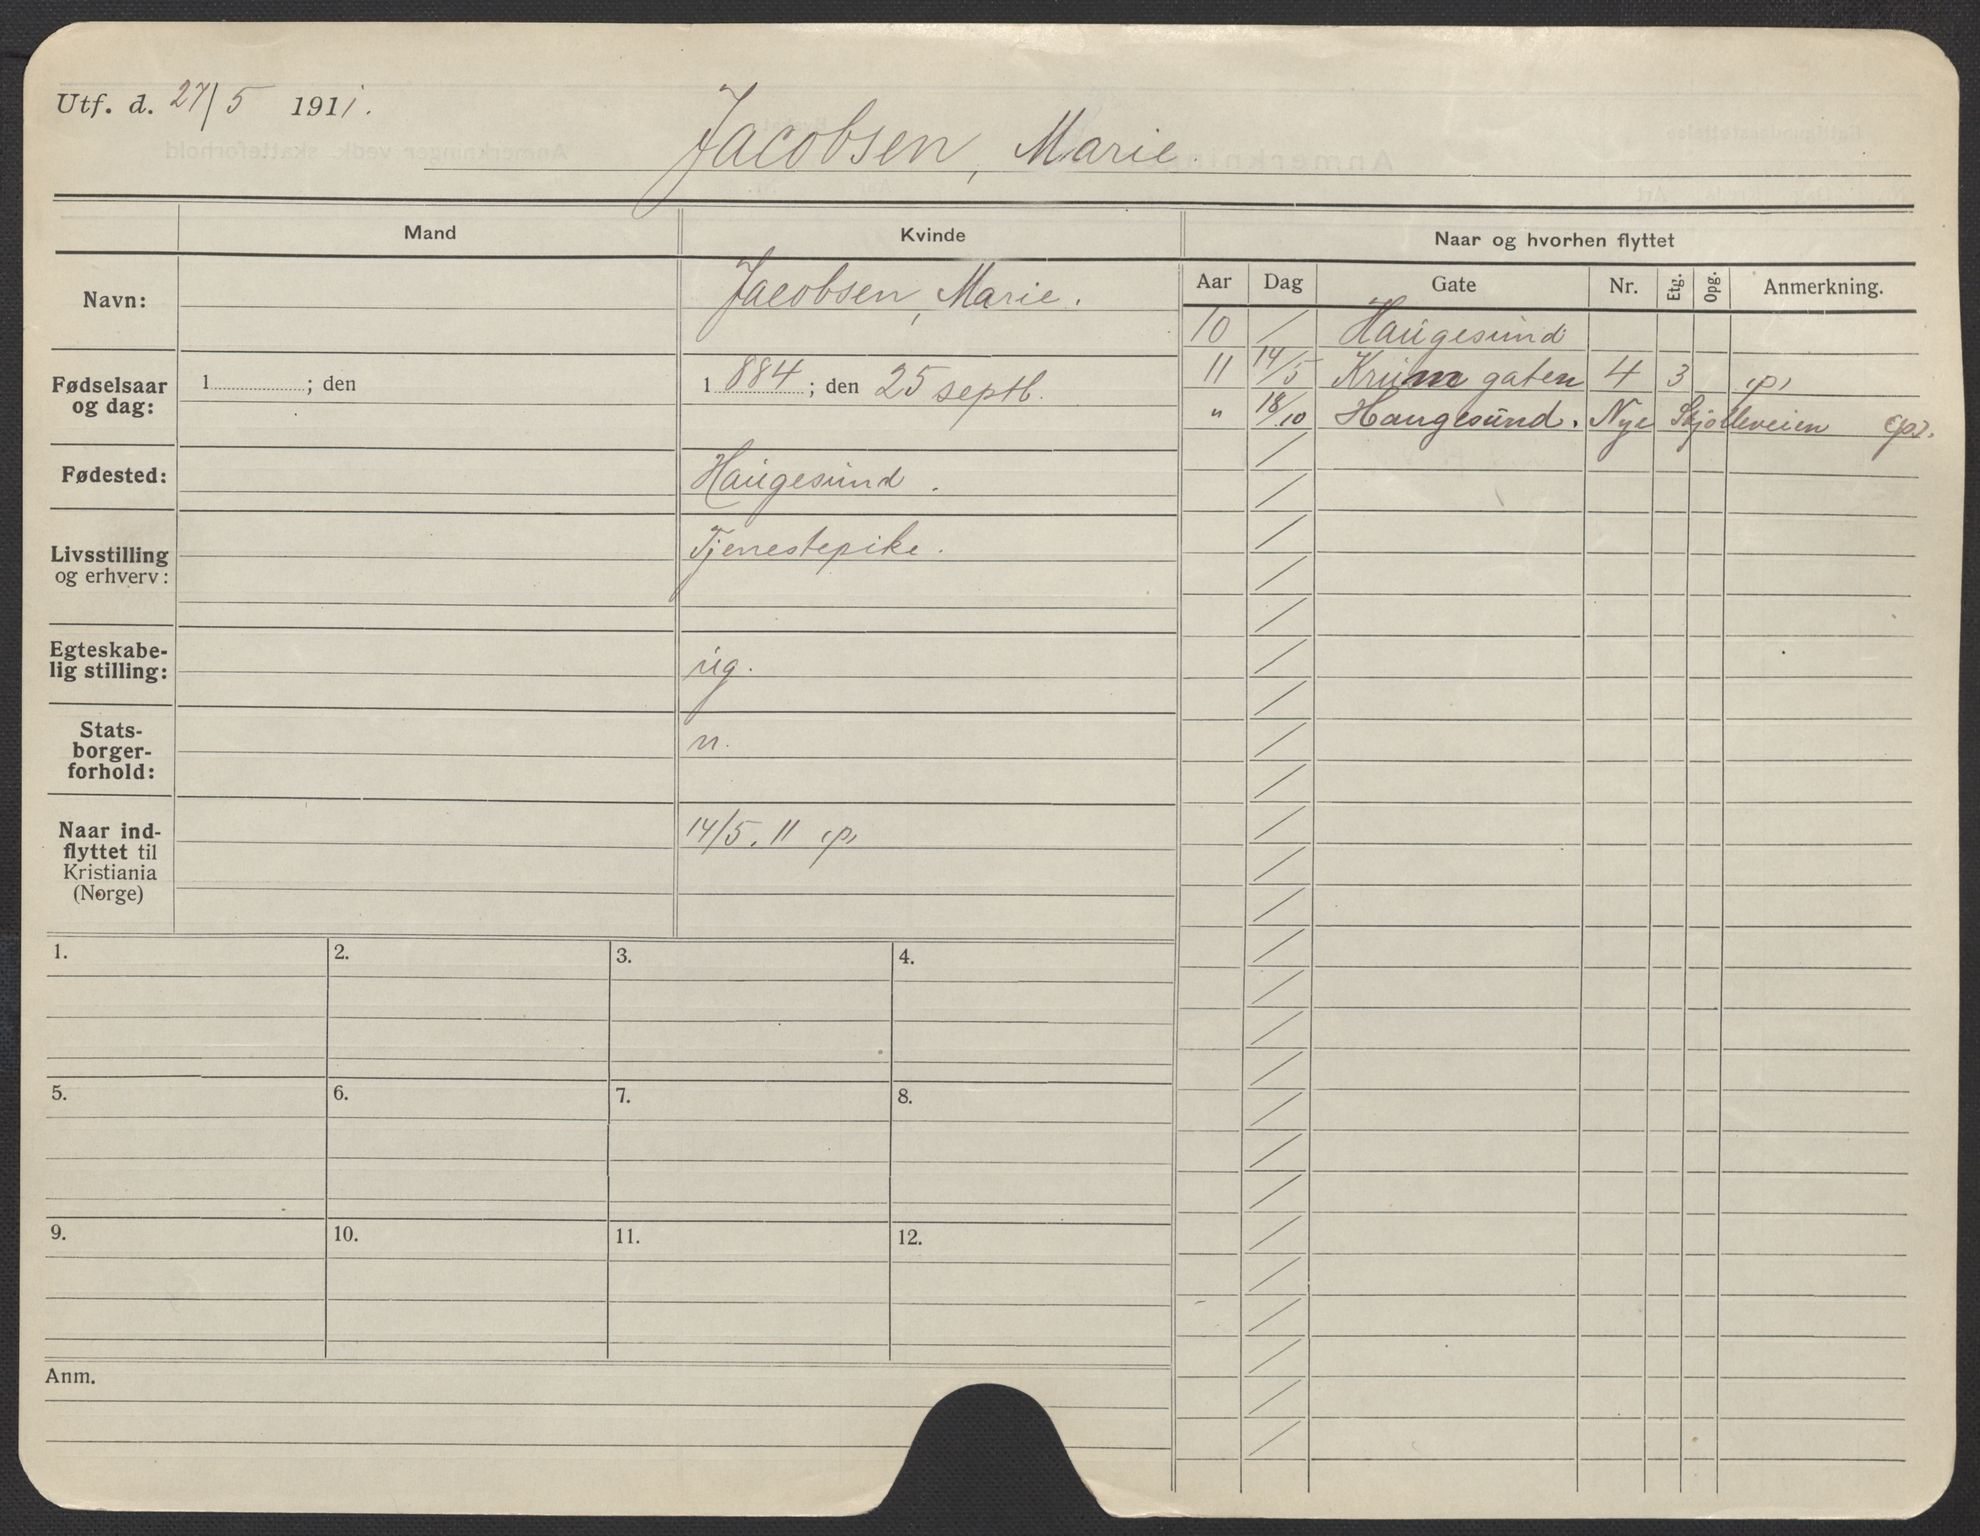 Utf. d. 27/5 1911.
Jacobsen, Marie.
Mand
Kvinde
Naar og hvorhen flyttet
Aar Dag Gate Nr. Etg. Opg. Anmerkning.
Navn:
Jacobsen, Marie.
Fødselsaar
og dag:
1 ; den
1 884 ; den 25 septb.
Fødested:
Haugesund.
Livsstilling
og erhverv:
Tjenestepike.
Egteskabe-
lig stilling:
ug.
Stats-
borger-
forhold:
n.
Naar ind-
flyttet til
Kristiania
(Norge)
14/5. 11 (p)
10 / Haugesund
11 14/5 Krumgaten 4 3 (p)
" 18/10 Haugesund. Nye Skjolleveien (p).
1.
2.
3.
4.
5.
6.
7.
8.
9.
10.
11.
12.
Anm.